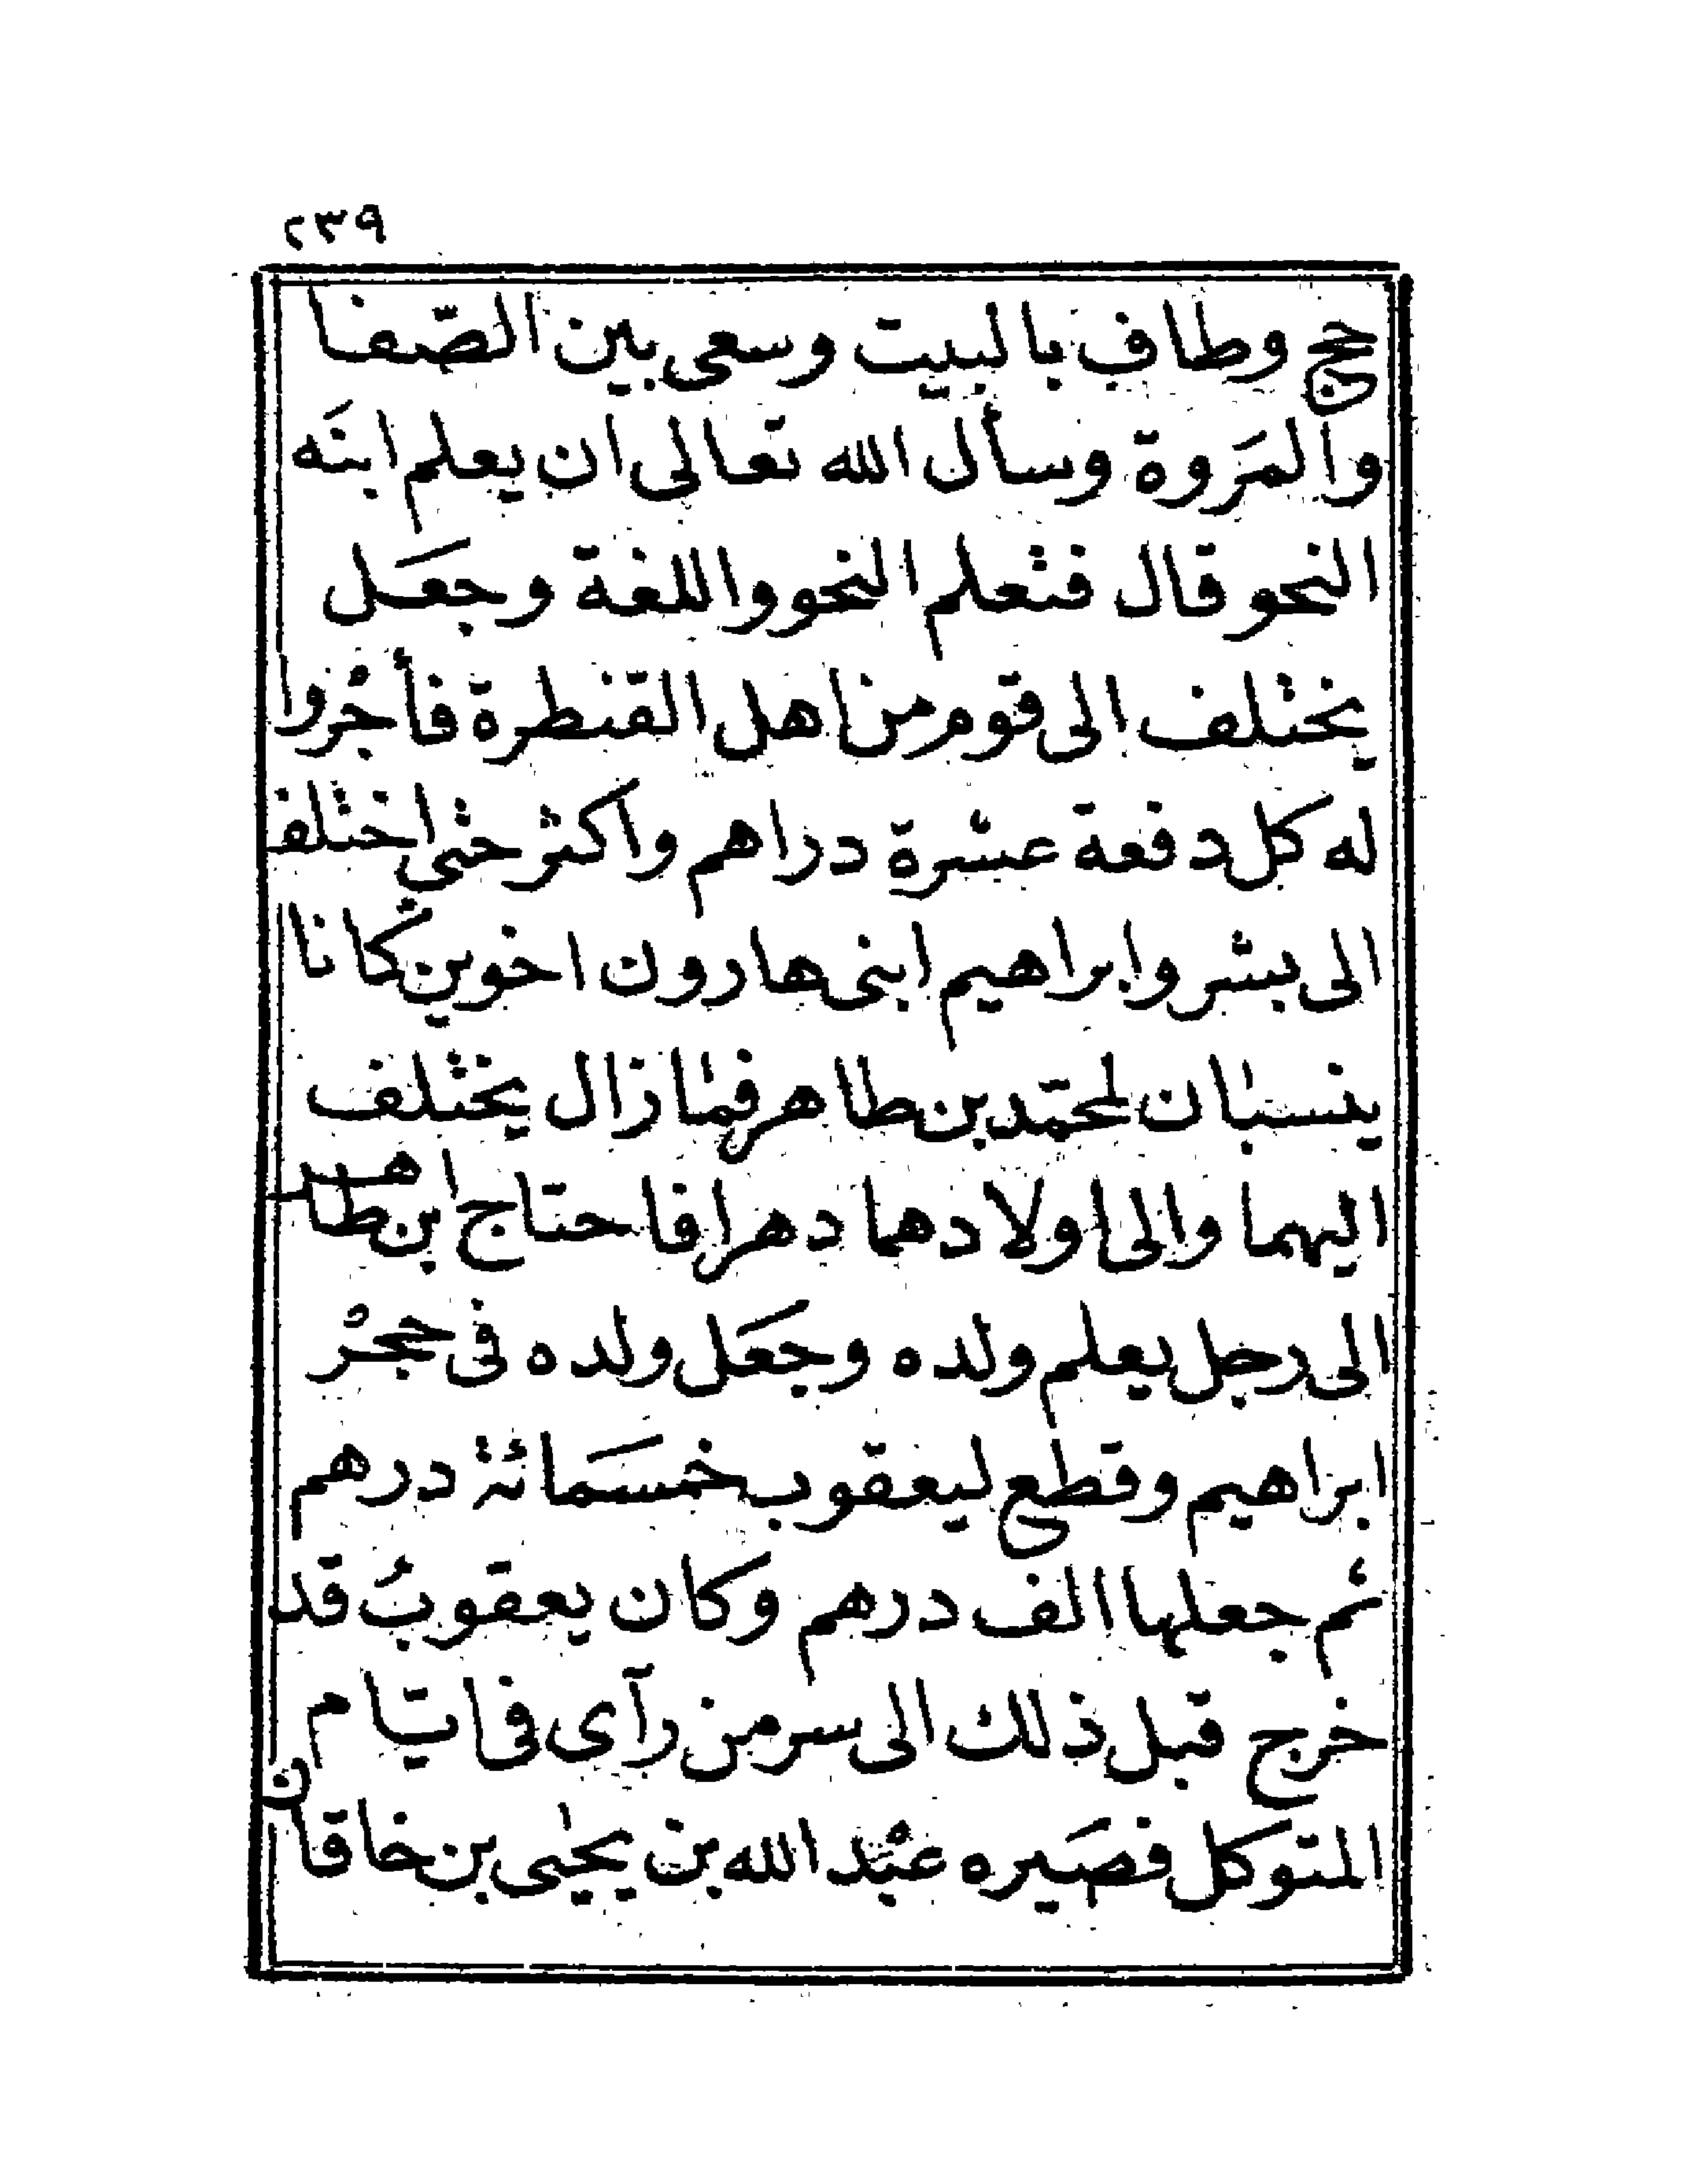 ٢٣٩
حج وطاف بالبيت وسعى بين الصّفا
والمَروة وسأل الله تعالى ان يعلم ابنَه
النحو قال فتعلم النحو واللغة وجعَل
يختلف الى قوم من اهل القنطرة فأجْروا
له كل دفعة عشرة دراهم واكثر حتى اختلف
الى بشر وابراهيم ابنى هارون اخوين كانا
ينسبان لمحمّد بن طاهر فما زال يختلف
اليهما والى اولادهما دهرا فاحتاج ابن طاهر
الى رجل يعلم ولده وجعَل ولده فى حجْر
ابراهيم وقطع ليعقوب خمسَمائة درهم
ثم جعلها الف درهم وكان يعقوبُ قد
خرج قبل ذلك الى سر من رآى فى ايّام
المتوكل فصَيره عبْد الله بن يحيى بن خاقان